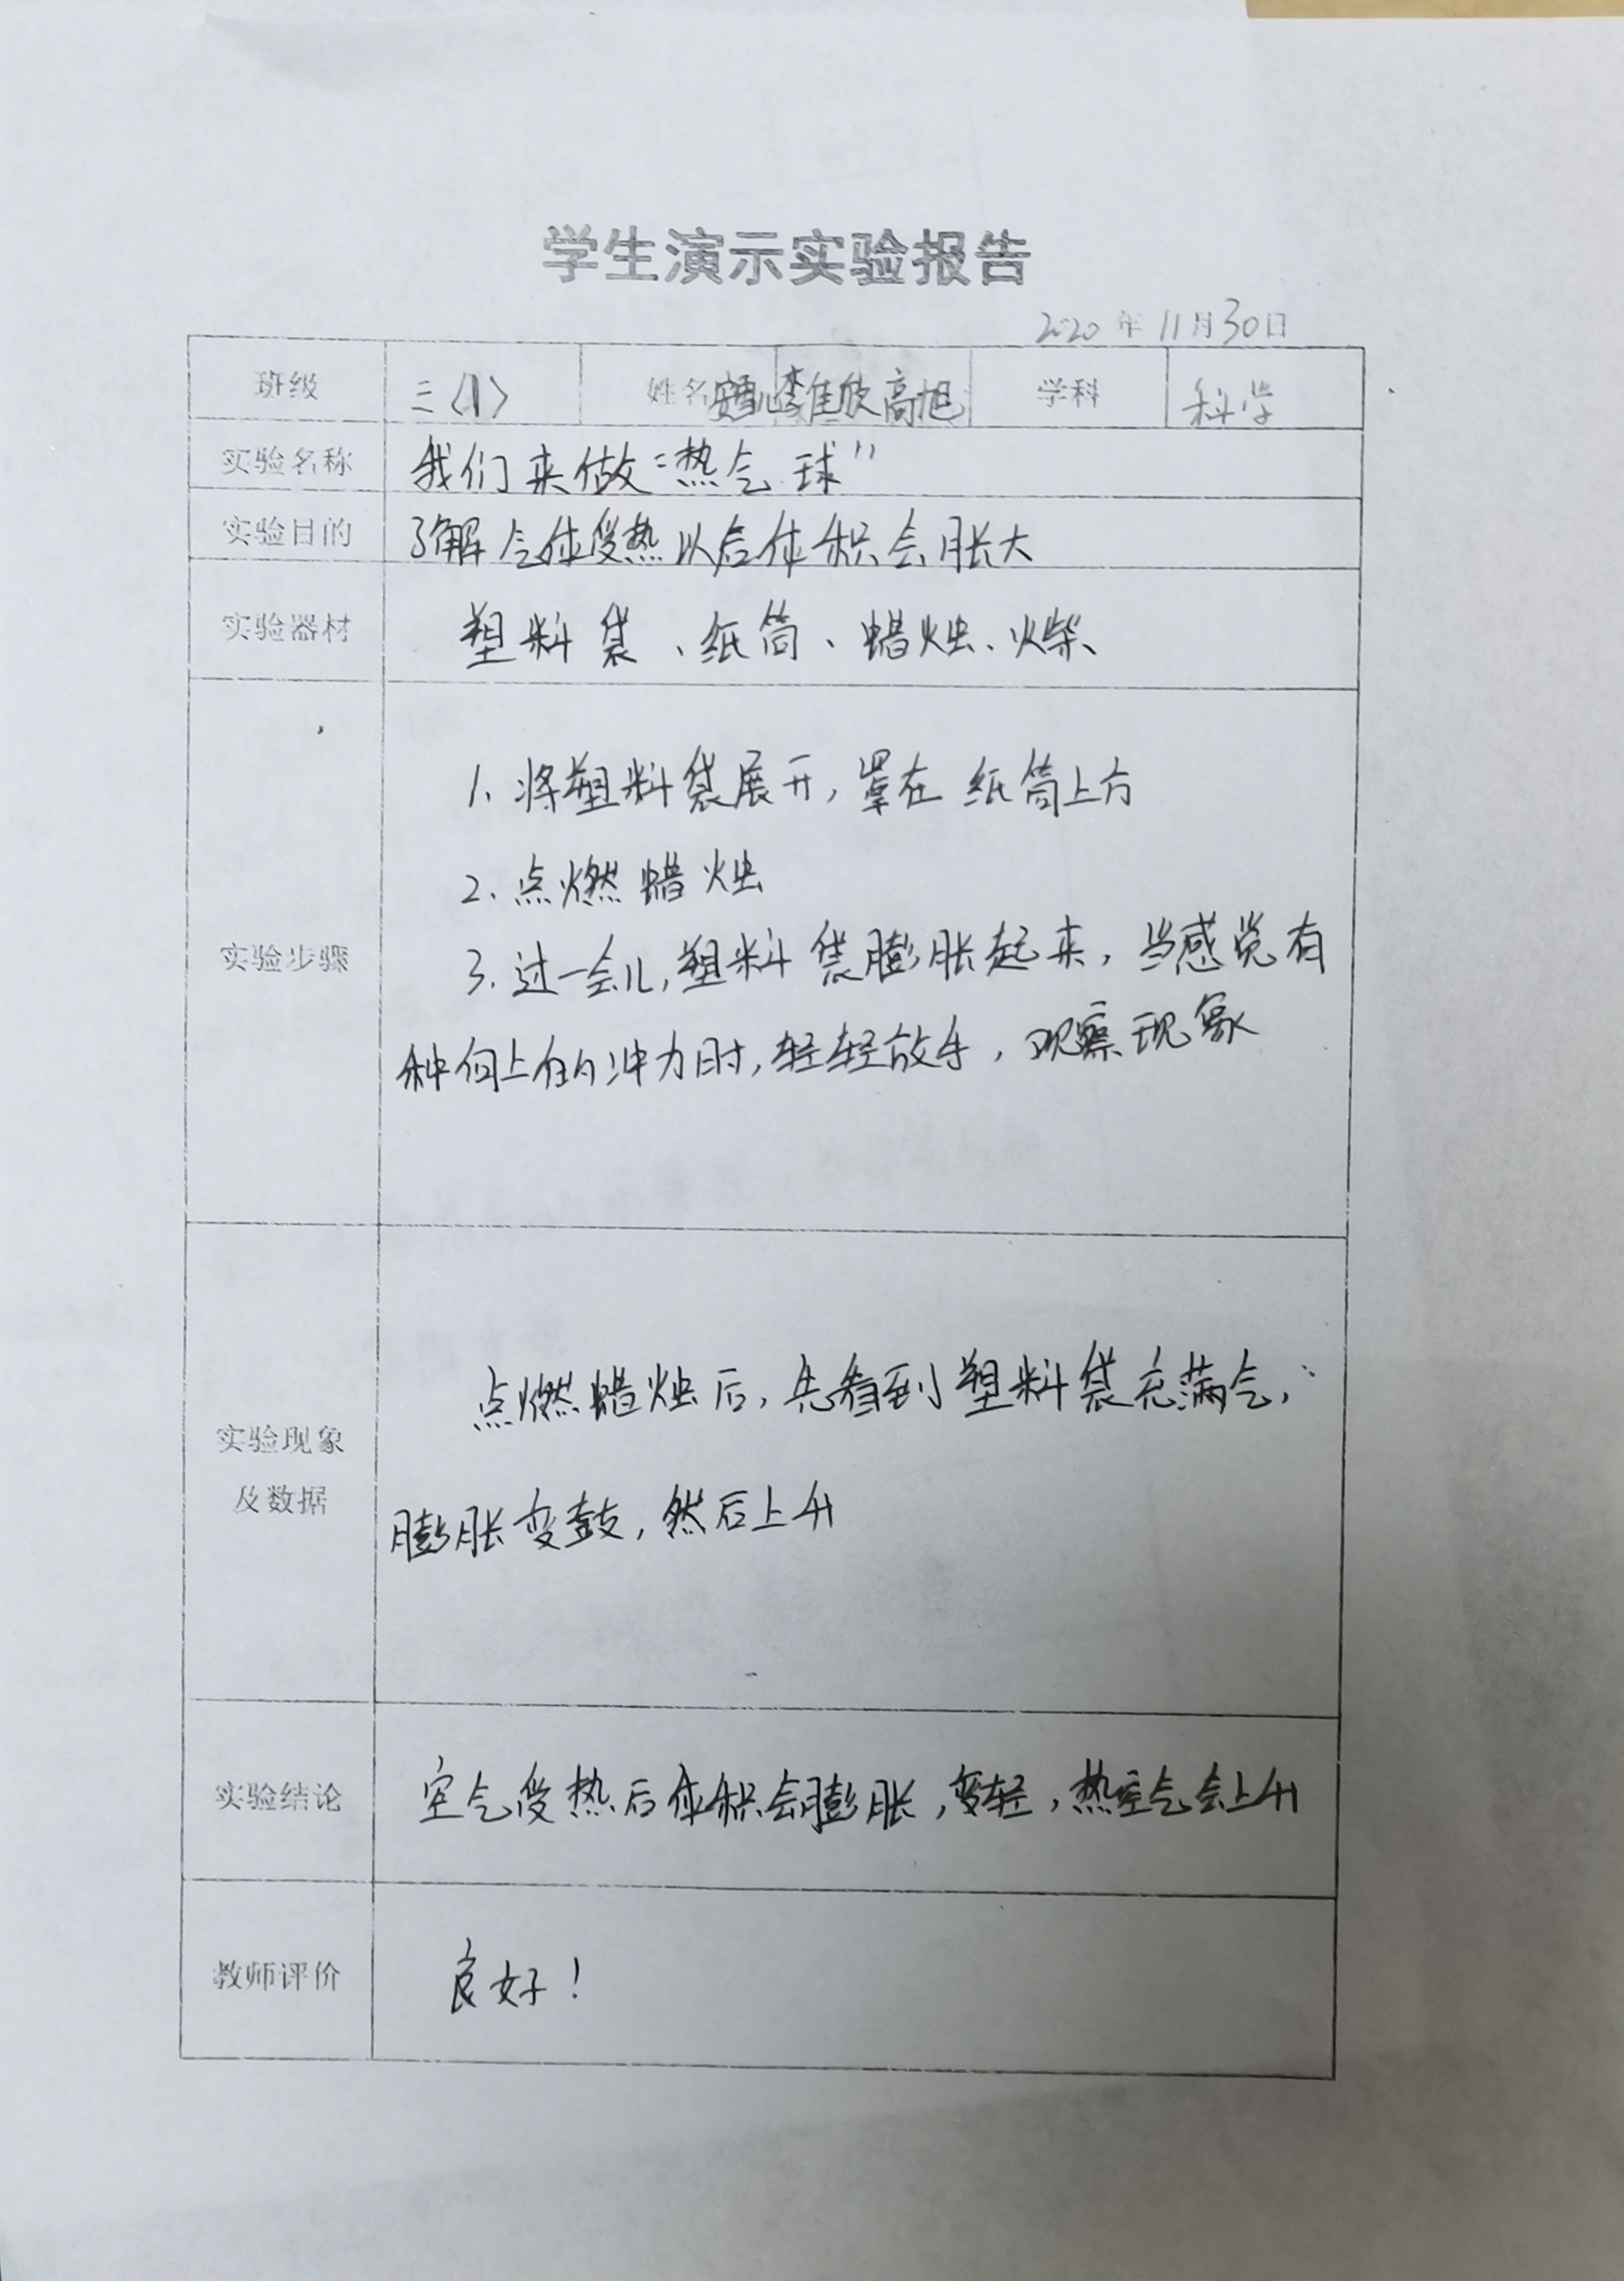 学生演示实验报告
2020年11月30日
班级 三(1) 姓名 李佳欣 高旭 学科 科学
实验名称 我们来做“热气球”
实验目的 了解气体受热以后体积会胀大
实验器材 塑料袋、纸筒、蜡烛、火柴、
1、将塑料袋展开,罩在纸筒上方
2、点燃蜡烛
实验步骤 3、过一会儿,塑料袋膨胀起来,当感觉有
种向上的冲力时,轻轻放手,观察现象
点燃蜡烛后,先看到塑料袋充满气,
实验现象
及数据
膨胀变鼓,然后上升
实验结论 空气受热后体积会膨胀,变轻,热空气会上升
教师评价 良好!